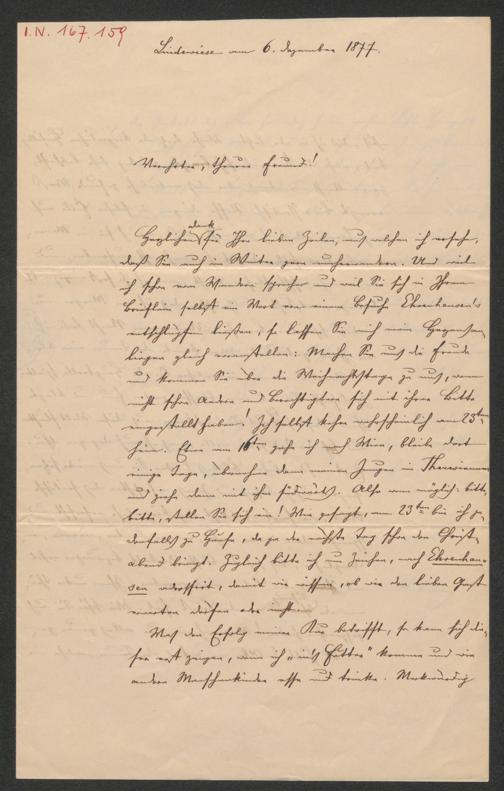 I.N. 167.159
Lindewiese am 6. Dezember 1877.
Verehrter, theurer Freund!
dank
Herzlichen für Ihre lieben Zeilen, aus welchen ich ersehe,
daß Sie auch im Winter gern umherwandern. Und weil
ich schon von Wandern spreche und weil Sie sich in Ihrem
Brieflein selbst ein Wort von einem Besuche Ehrenhausen's
entschlüpfen ließen, so lassen Sie mich mein Herzens
liegen gleich : Machen Sie uns die Freude
und kommen Sie über die Weihnachtstage zu uns, wenn
nicht schon Andere und Berechtigtere sich mit ihrer Bitte
eingestellt haben! Ich selbst kehre wahrscheinlich am 23ten
heim. Etwa am 16ten gehe ich nach Wien, bleibe dort
einige Tage, dann meinen Jungen im Theresianum
und gehe dann mit ihm südwärts. Also wenn möglich: bitte,
bitte, stellen Sie sich ein! Wie gesagt, am 23ten bin ich je-
denfalls zu Hause, da ja der nächste Tag schon den Christ-
abend bringt. Zugleich bitte ich um Zeichen, nach Ehrenhau-
sen adressirt, damit wir wissen, ob wir den lieben Gast
erwarten dürfen oder nicht.
Was den Erfolg meiner Kur betrifft, so kann sich die-
ser erst zeigen, wenn ich „in's Futter" komme und wie
andere Menschenkinder esse und trinke. Merkwürdig